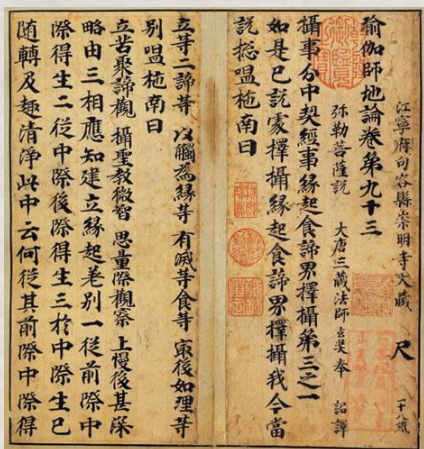 江寧府句容縣崇明寺大藏 尺 一十八紙
瑜伽師地論卷第九十三
彌勒菩薩說 大唐三藏法師玄奘奉 詔譯
攝事分中契經事緣起食諦界擇攝第三之一
如是已說處擇攝緣起食諦界擇攝我今當
說總嗢柁南曰
立等二諦等 以觸為緣等 有滅等食等 㝡後如理等
別嗢柁南曰
立苦聚諦觀 攝聖教微智 思量際觀察 上慢後甚深
略由三相應知建立緣起差別一從前際中
際得生二從中際後際得生三於中際生已
随轉及趣清淨此中云何從其前際中際得